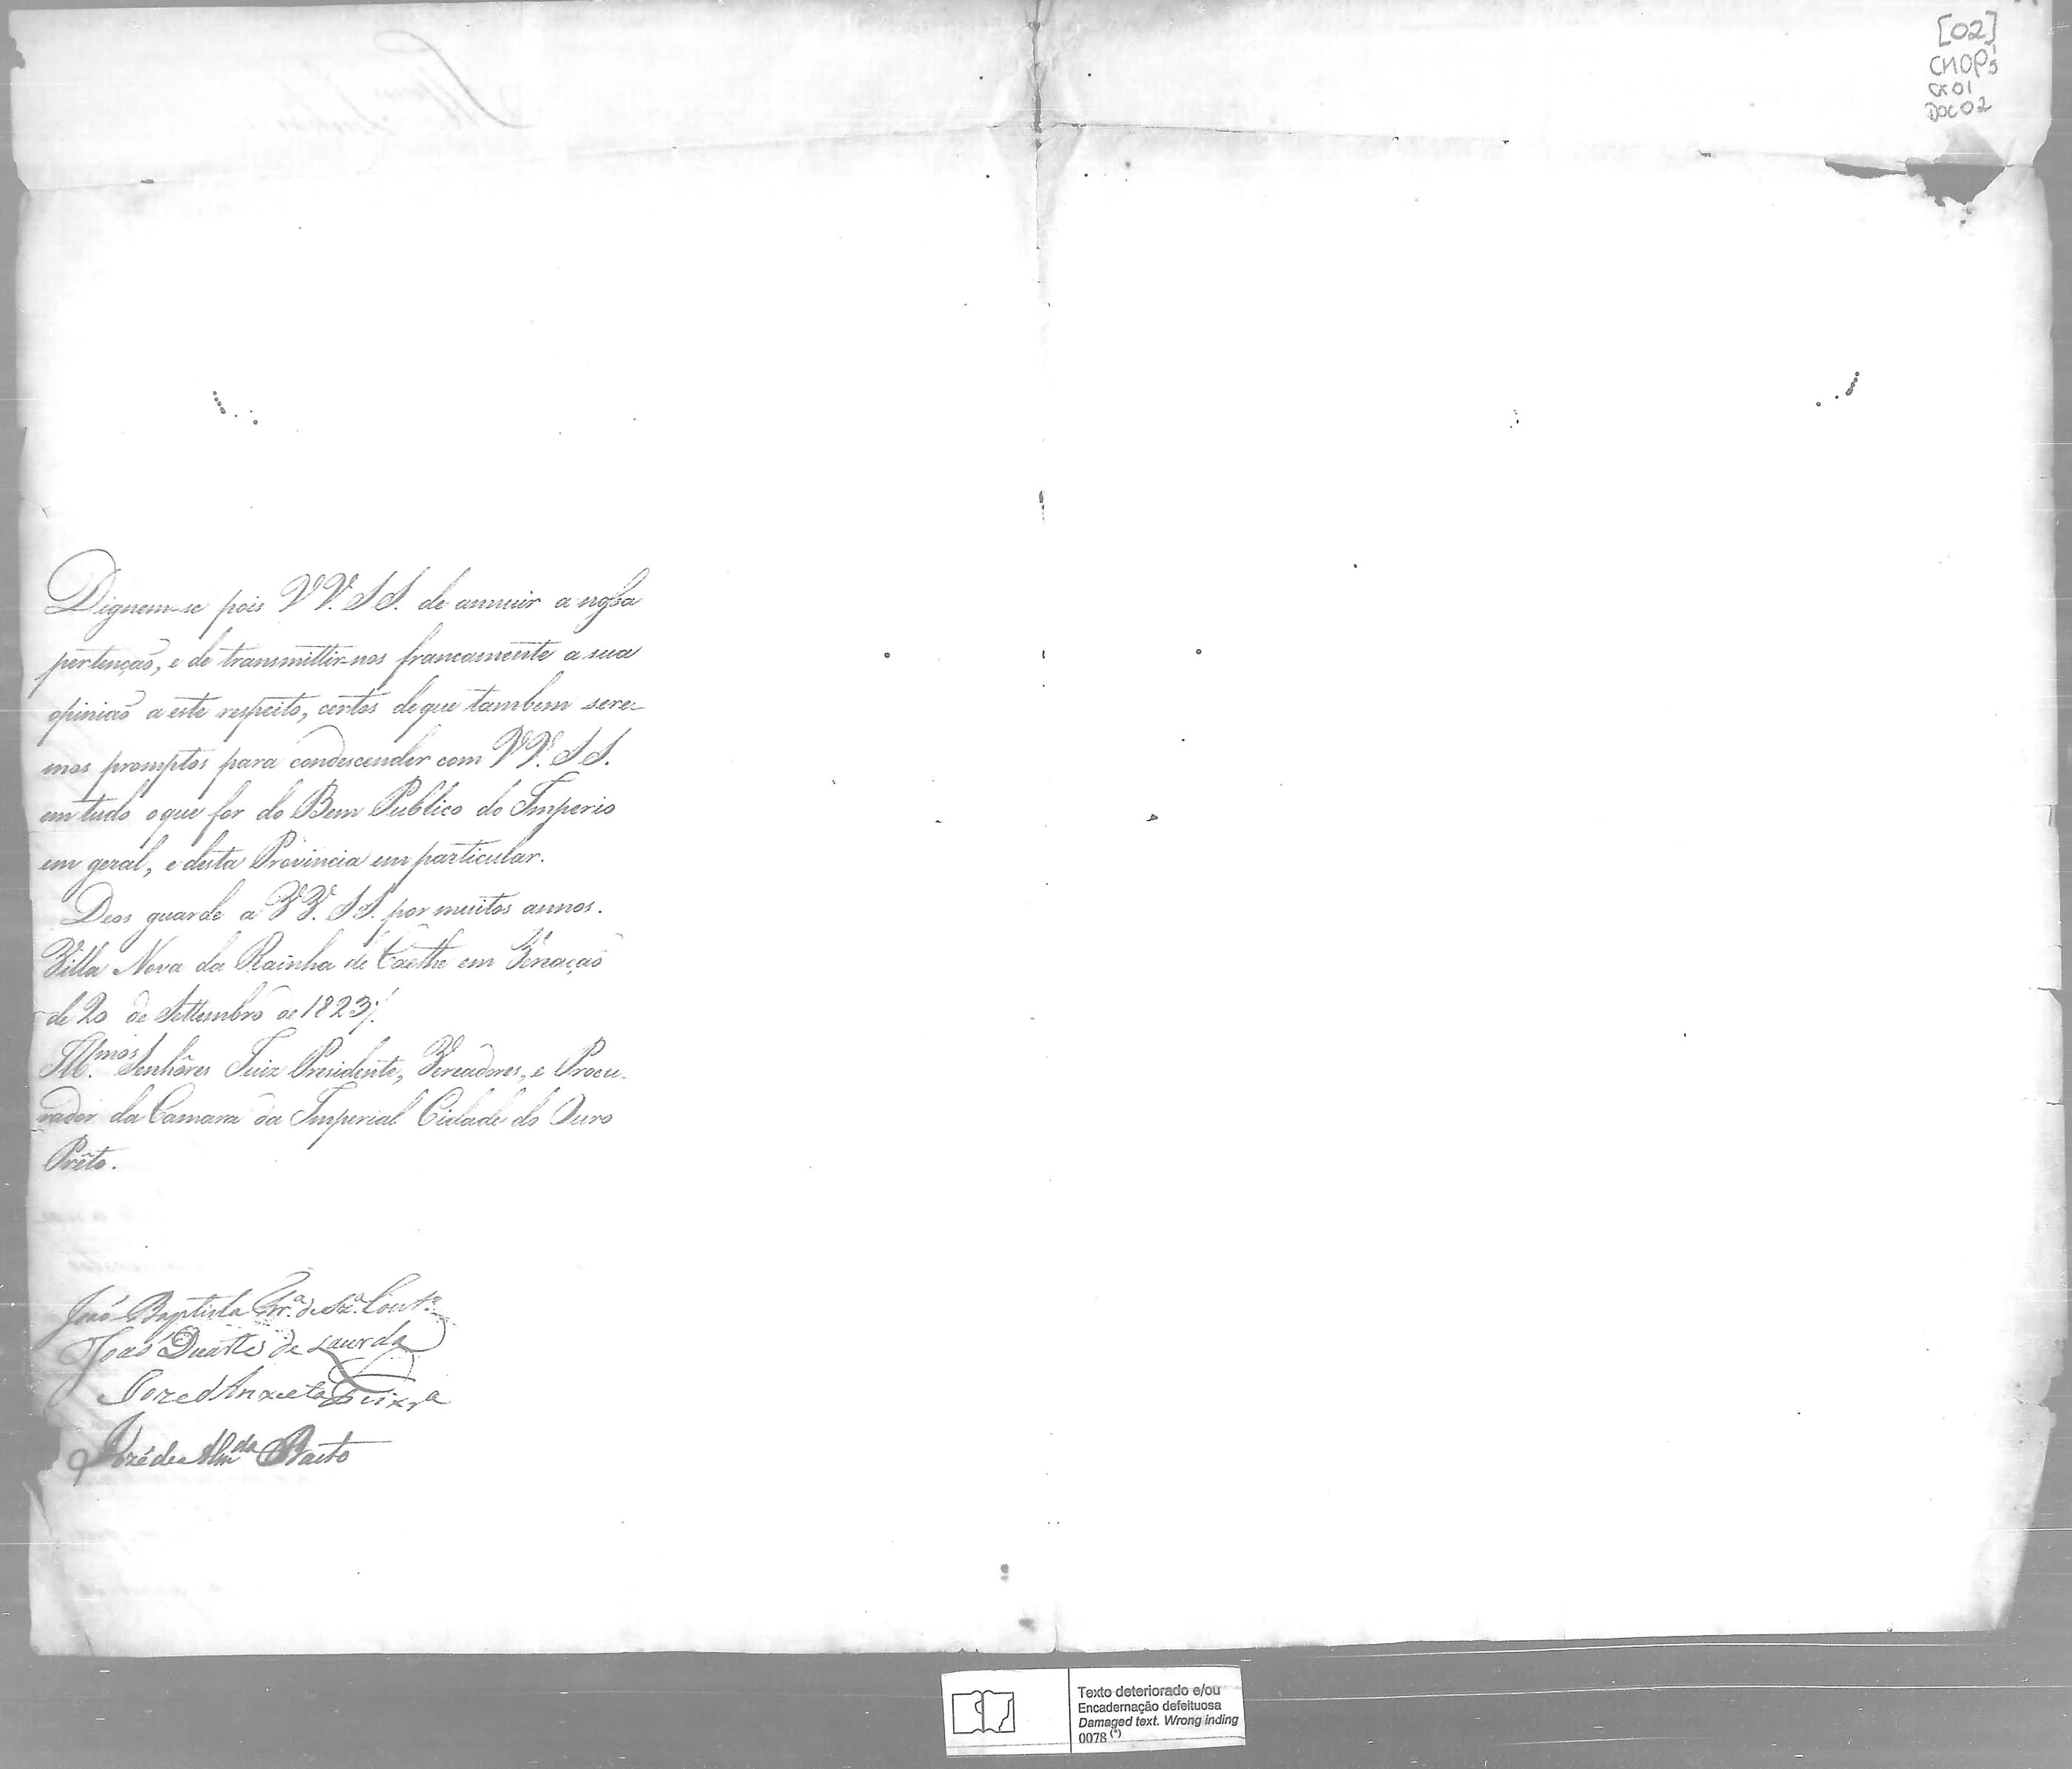 [02]
CMOP
CX 01
DOC 02
Dignem-se pois VV. SS. de annuir a nossa
pertenção, e de transmittir-nos francamente a sua
opinião a este respeito, certos de que tambem sere-
mos promptos para condescender com VV. SS.
em tudo o que for do Bem Publico do Imperio
em geral, e desta Provincia em particular.
Deos guarde a VV. SS. por muitos annos.
Villa Nova da Rainha de Caethe em Vereação
de 20 de Settembro de 1823
Ill.mos Senhôres Juiz Presidente, Vereadores, e Procu-
rador da Camara da Imperial Cidade do Ouro
Prêto.
João Baptista Frr.ª de Sz.ª Cout.º
João Duarte de Lacerda
Joze Anacleto Teixr.ª
Jozé de Alm.da
Texto deteriorado e/ou
Encadernação defeituosa
Damaged text. Wrong inding
0078 (*)